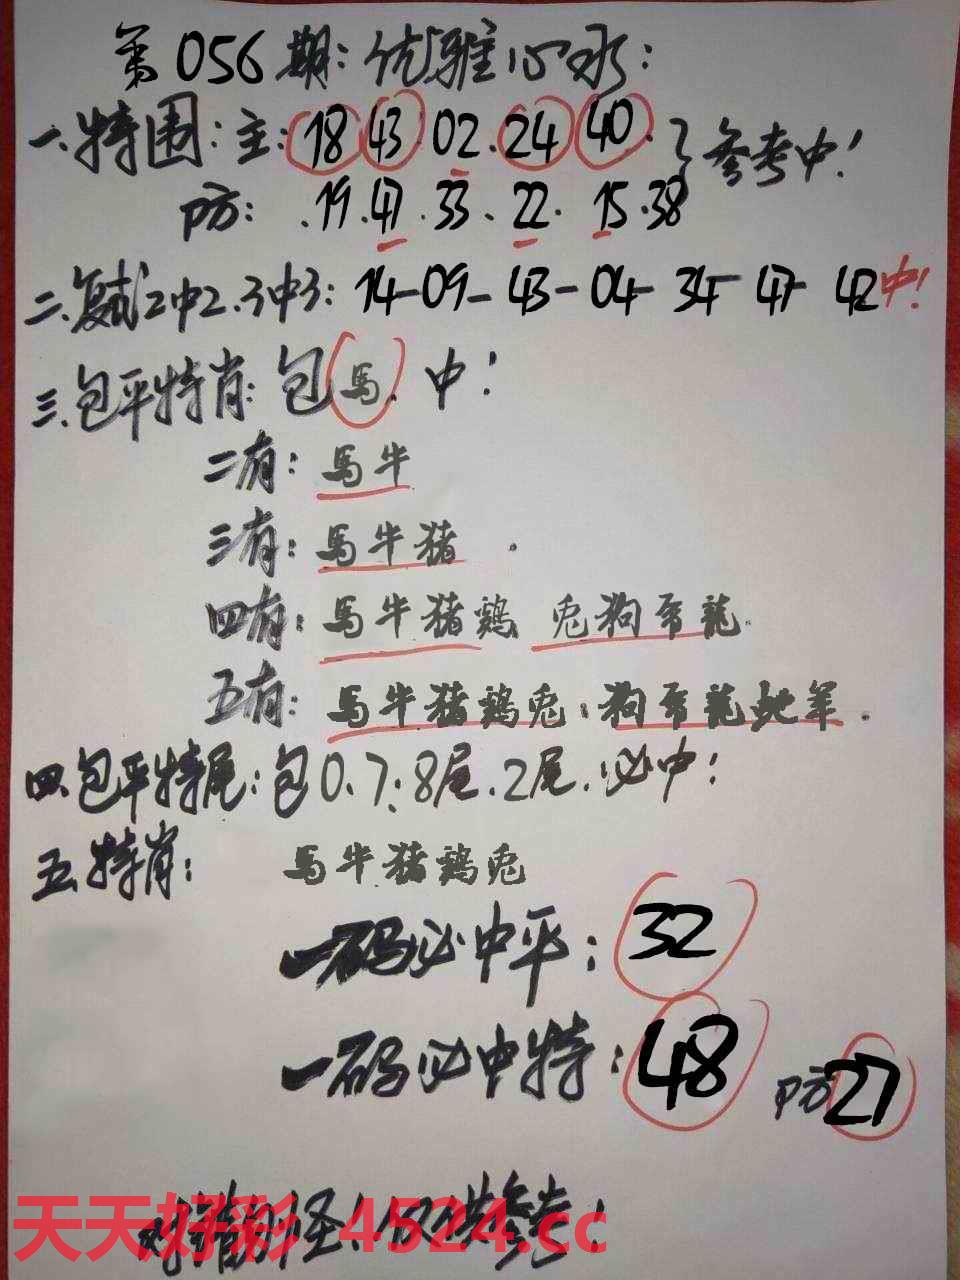 第056期:优雅心水:
一.特围:主:18.43.02.24.40.}参考中!
防:.19.47.33.22.15.38
二.复试2中2.3中3:14-09-43-04-34-47-42中!
三.包平特肖:包馬.中!
二有:馬牛
三有:馬牛猪.
四有:馬牛猪鷄 兎狗帋龍.
五有:馬牛猪鷄兎:狗帋龍虵羊.
四.包平特尾:包0.7.8尾.2尾.必中!
五.特肖:馬牛猪鷄兎
一码必中平:32
一码必中特:48 防27
对错别怪!仅供参考!
天天好彩 4524.cc